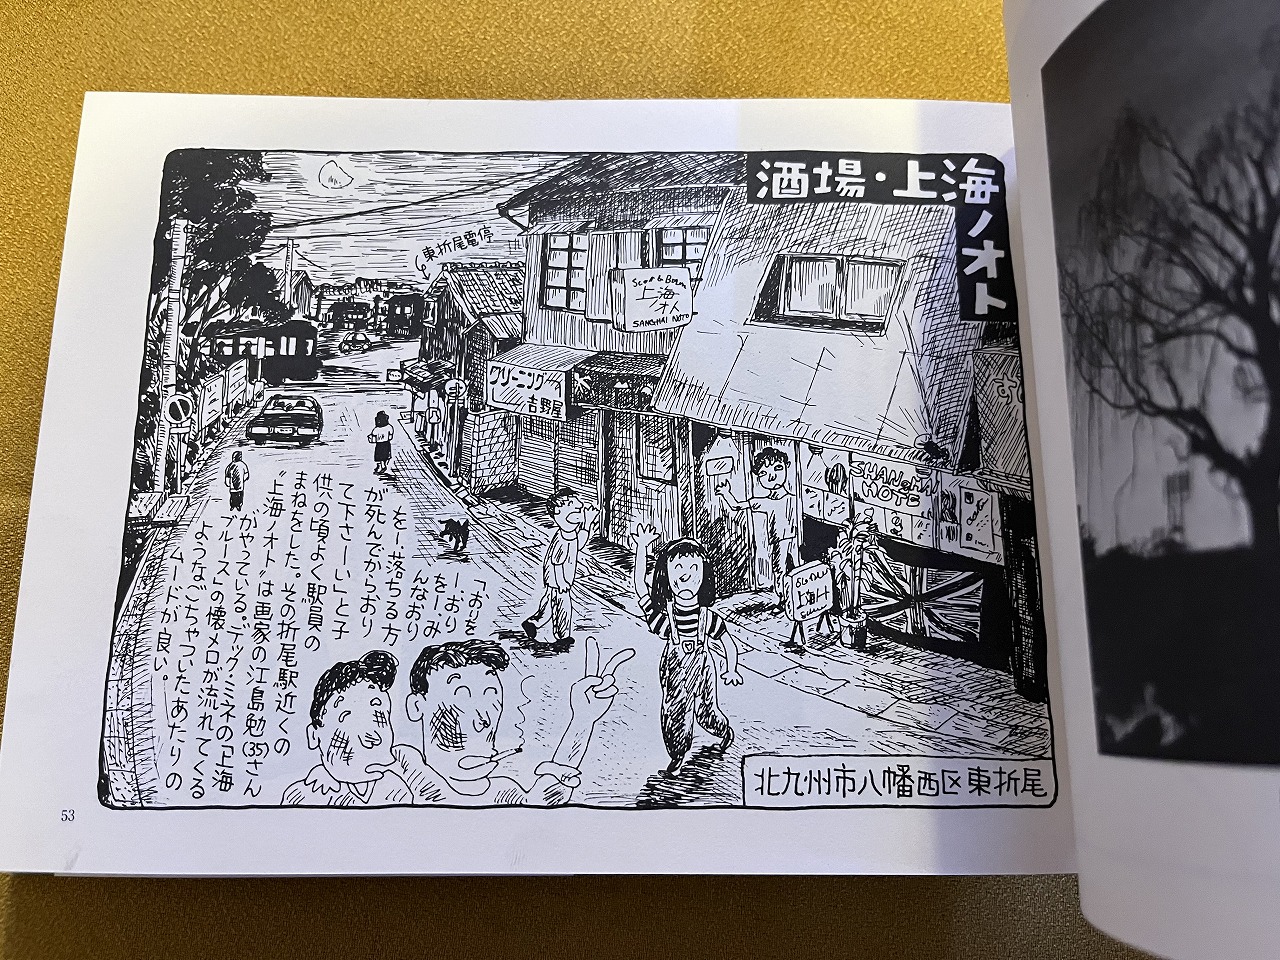 酒場・上海
ノオト
東折尾電停
上海
SANGHAI NOTO
クリーニング
吉野屋
SHANGHAI
NOTE
上海
「おりを
ーおり
をーみ
んなおり
をー落ちる方
が死んでからおり
て下さーい」と子
供の頃よく駅員の
まねをした。その折尾駅近くの
"上海ノオト"は画家の江島勉(35)さん
がやっている。ディック・ミネの「上海
ブルース」の懐メロが流れてくる
ようなごちゃついたあたりの
ムードが良い。
北九州市八幡西区東折尾
53